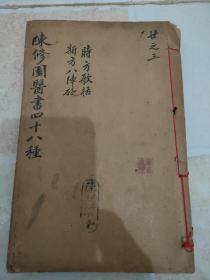 廿之三
時方歌括
新方八陣砭
陳修園醫書四十八種